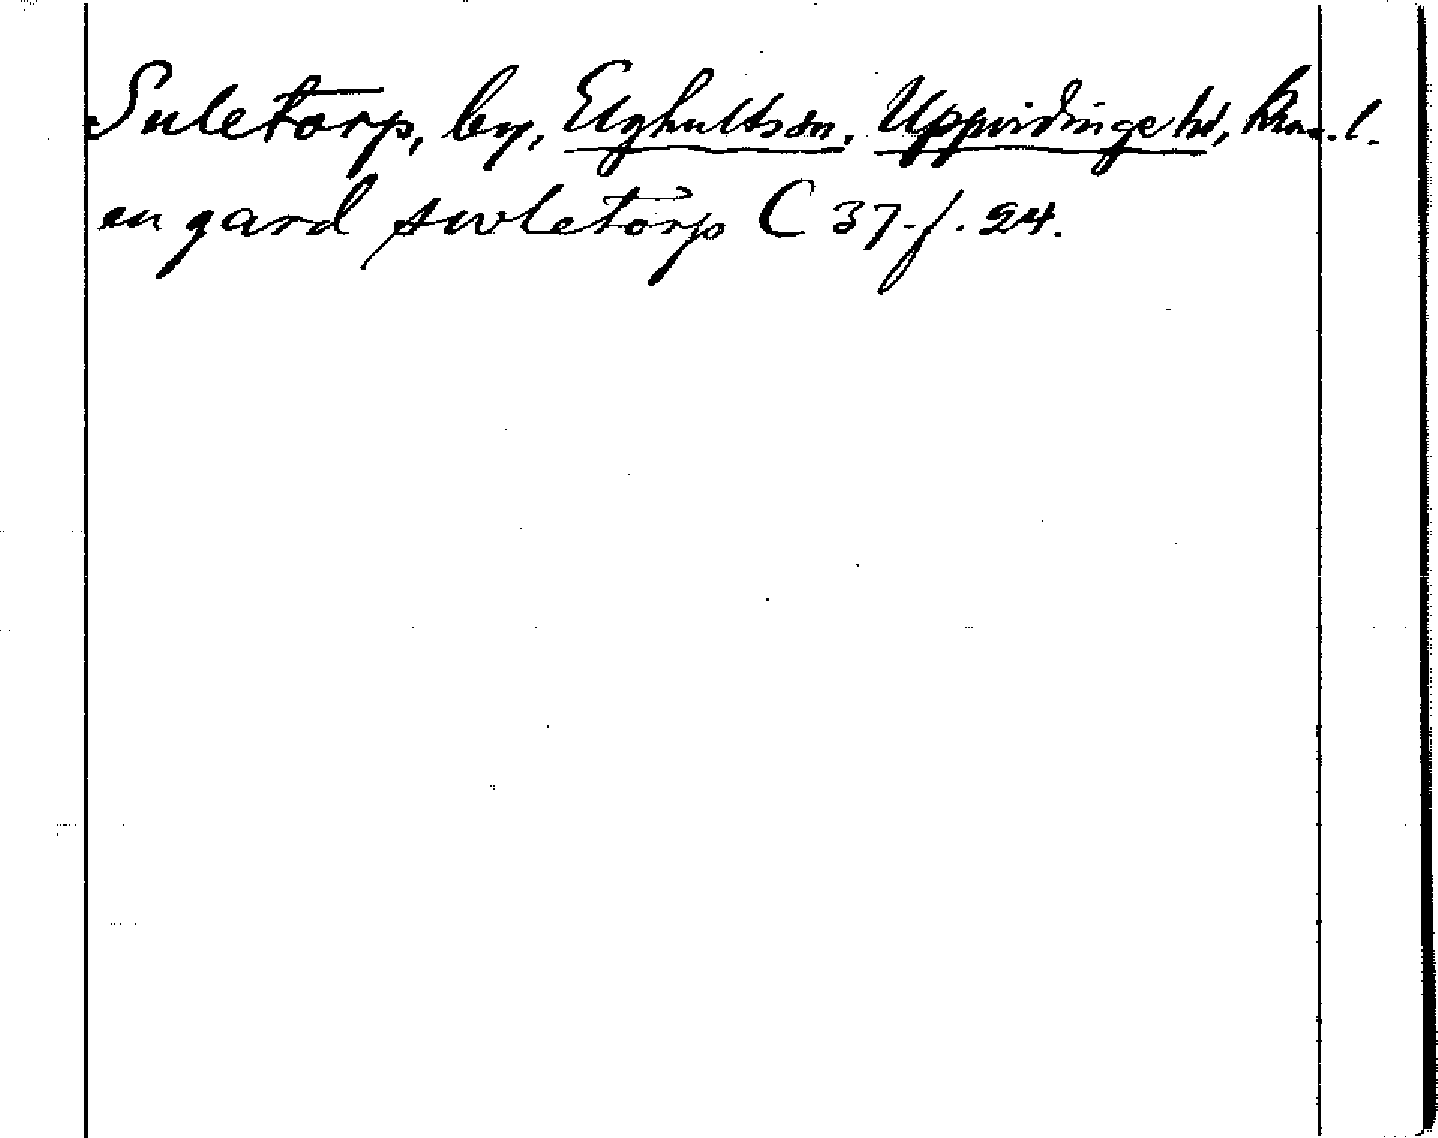 Suletorp, by, Elghults sn, Uppvidinge hd, Kron. l.
en gard swletorp C 37 f. 24.